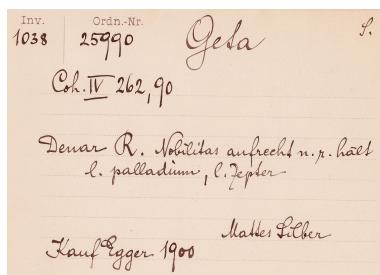 Inv. Ordn.-Nr.
1038 25990 Geta S.
Coh. IV 262,90
Denar R. Nobilitas aufrecht n. r. hält
l. palladium, l. Zepter
Mattes Silber
Kauf Egger 1900